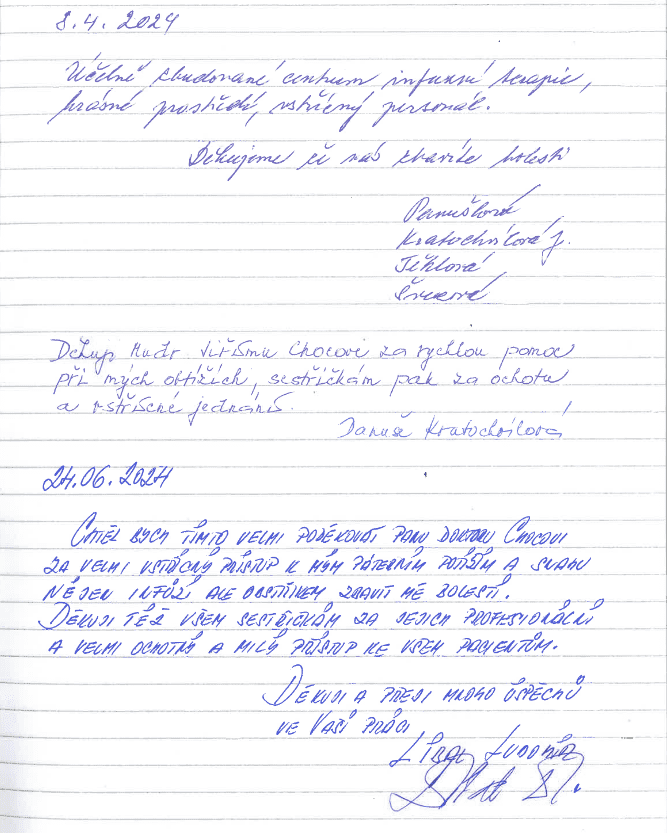 8.4. 2024
Účelně zbudované centrum infuzní terapie,
krásné prostředí, vstřícný personál.
Děkujeme že nás zbavíte bolesti
Kratochvílová J.
Děkuji Mudr Jiřímu Chocovi za rychlou pomoc
při mých obtížích, sestřičkám pak za ochotu
a vstřícné jednání.
Danuše Kratochvílová
24.06.2024
CHTĚL BYCH TÍMTO VELMI PODĚKOVAT PANU DOKTORU CHOCOVI
ZA VELMI VSTŘÍCNÝ PŘÍSTUP K MÝM PÁTEŘNÍM POTÍŽÍM A SNAHU
NEJEN INFŮZÍ ALE OBSTŘIKEM ZBAVIT MĚ BOLESTÍ.
DĚKUJI TÉŽ VŠEM SESTŘIČKÁM ZA JEJICH PROFESIONÁLNÍ
A VELMI OCHOTNÝ A MILÝ PŘÍSTUP KE VŠEM PACIENTŮM.
DĚKUJI A PŘEJI MNOHO ÚSPĚCHŮ
VE VAŠÍ PRÁCI